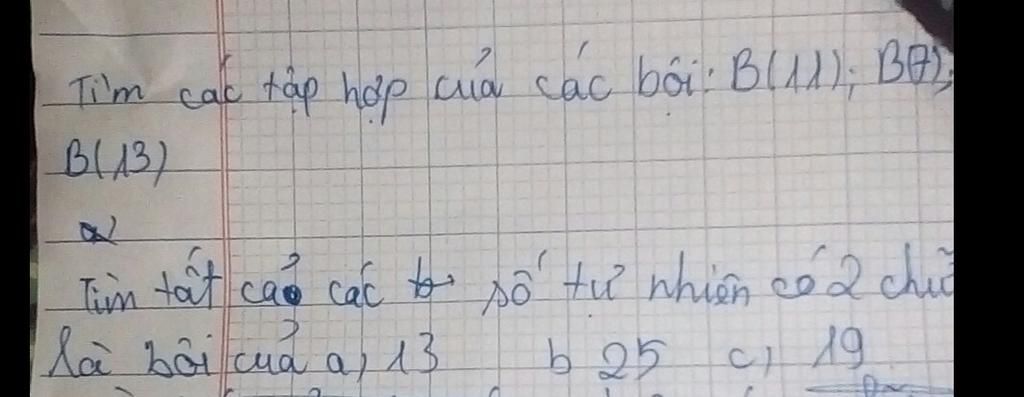 Tìm các tập hợp của các bội: B(11); B(7);
B(13)
a)
Tìm tất cả các số tự nhiên có 2 chữ
là bôi của a) 13 b 25 c) 19